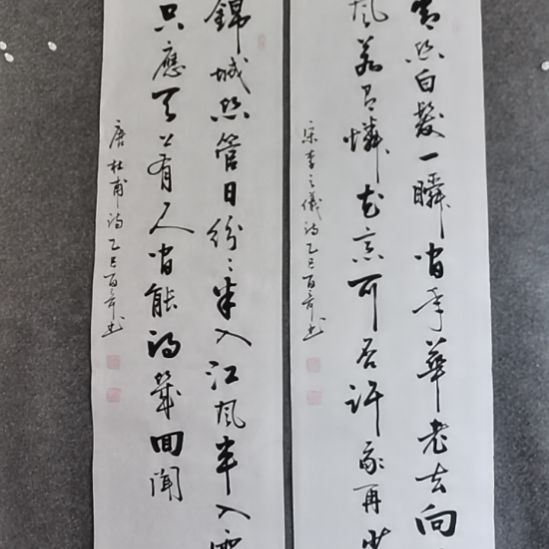 青絲白髮一瞬間年華老去向
風若有憐花意可否許我再少
宋李之儀詩乙巳百奇書
錦城絲管日紛紛半入江風半入雲
只應天上有人間能得幾回聞
唐杜甫詩乙巳百奇書